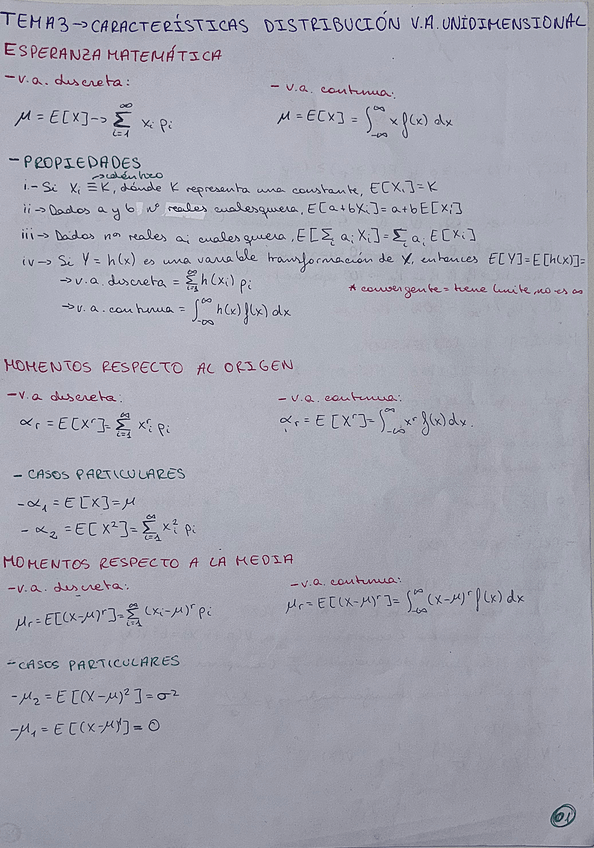 TEMA3→CARACTERÍSTICAS DISTRIBUCIÓN V.A. UNIDIMENSIONAL
ESPERANZA MATEMÁTICA
-v.a. discreta:
μ = E[X] → ∑_{i=1}^{∞} x_i p_i
- v.a. continua:
μ = E[X] = ∫_{-∞}^{∞} x f(x) dx
- PROPIEDADES
→idéntico
i.- Si X_i ≡ K, dónde K representa una constante, E[X_i] = K
ii → Dados a y b nº reales cualesquiera, E[a+bX_i] = a+bE[X_i]
iii → Dados nos reales a_i cualesquiera, E[∑_i a_i X_i] = ∑_i a_i E[X_i]
iv → Si Y = h(x) es una variable transformación de X, entonces E[Y]=E[h(x)]=
→ v.a. discreta = ∑_{i=1}^{∞} h(x_i) p_i
* convergente = tiene límite, no es ∞
→ v.a. continua = ∫_{-∞}^{∞} h(x) f(x) dx
MOMENTOS RESPECTO AL ORIGEN
-v.a discreta:
α_r = E[X^r] = ∑_{i=1}^{∞} x_i^r p_i
- v.a. continua:
α_r = E[X^r] = ∫_{-∞}^{∞} x^r f(x) dx.
- CASOS PARTICULARES
-α_1 = E[X] = μ
- α_2 = E[X^2] = ∑_{i=1}^{∞} x_i^2 p_i
MOMENTOS RESPECTO A LA MEDIA
-v.a. discreta:
μ_r = E[(X-μ)^r] = ∑_{i=1}^{∞} (x_i-μ)^r p_i
-v.a. continua:
μ_r = E[(X-μ)^r] = ∫_{-∞}^{∞} (x-μ)^r f(x) dx
-CASOS PARTICULARES
-μ_2 = E[(X-μ)^2] = σ^2
-μ_1 = E[(X-μ)^1] = 0
01